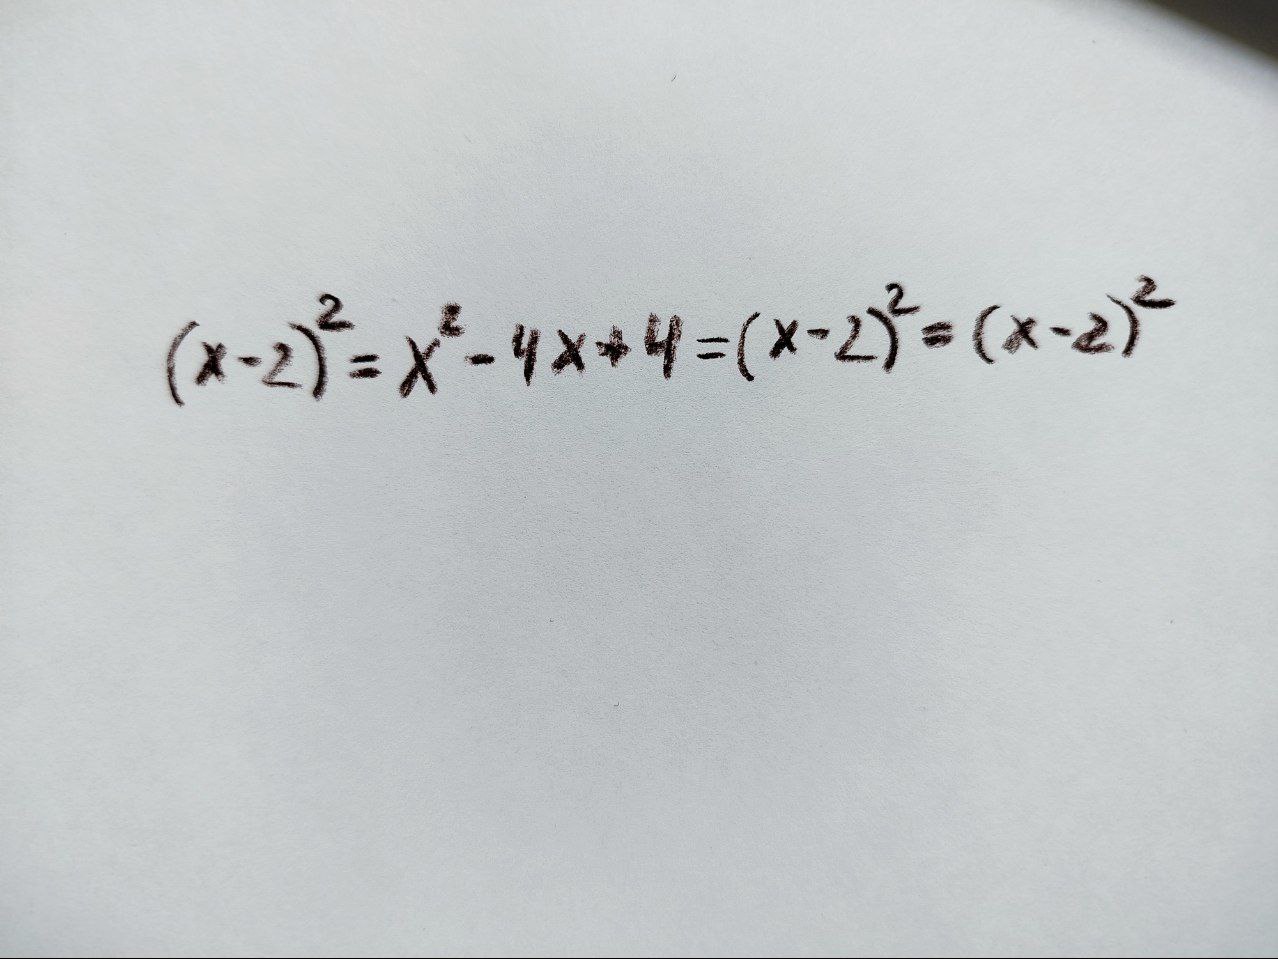 (x-2)² = x² - 4x + 4 = (x-2)² = (x-2)²